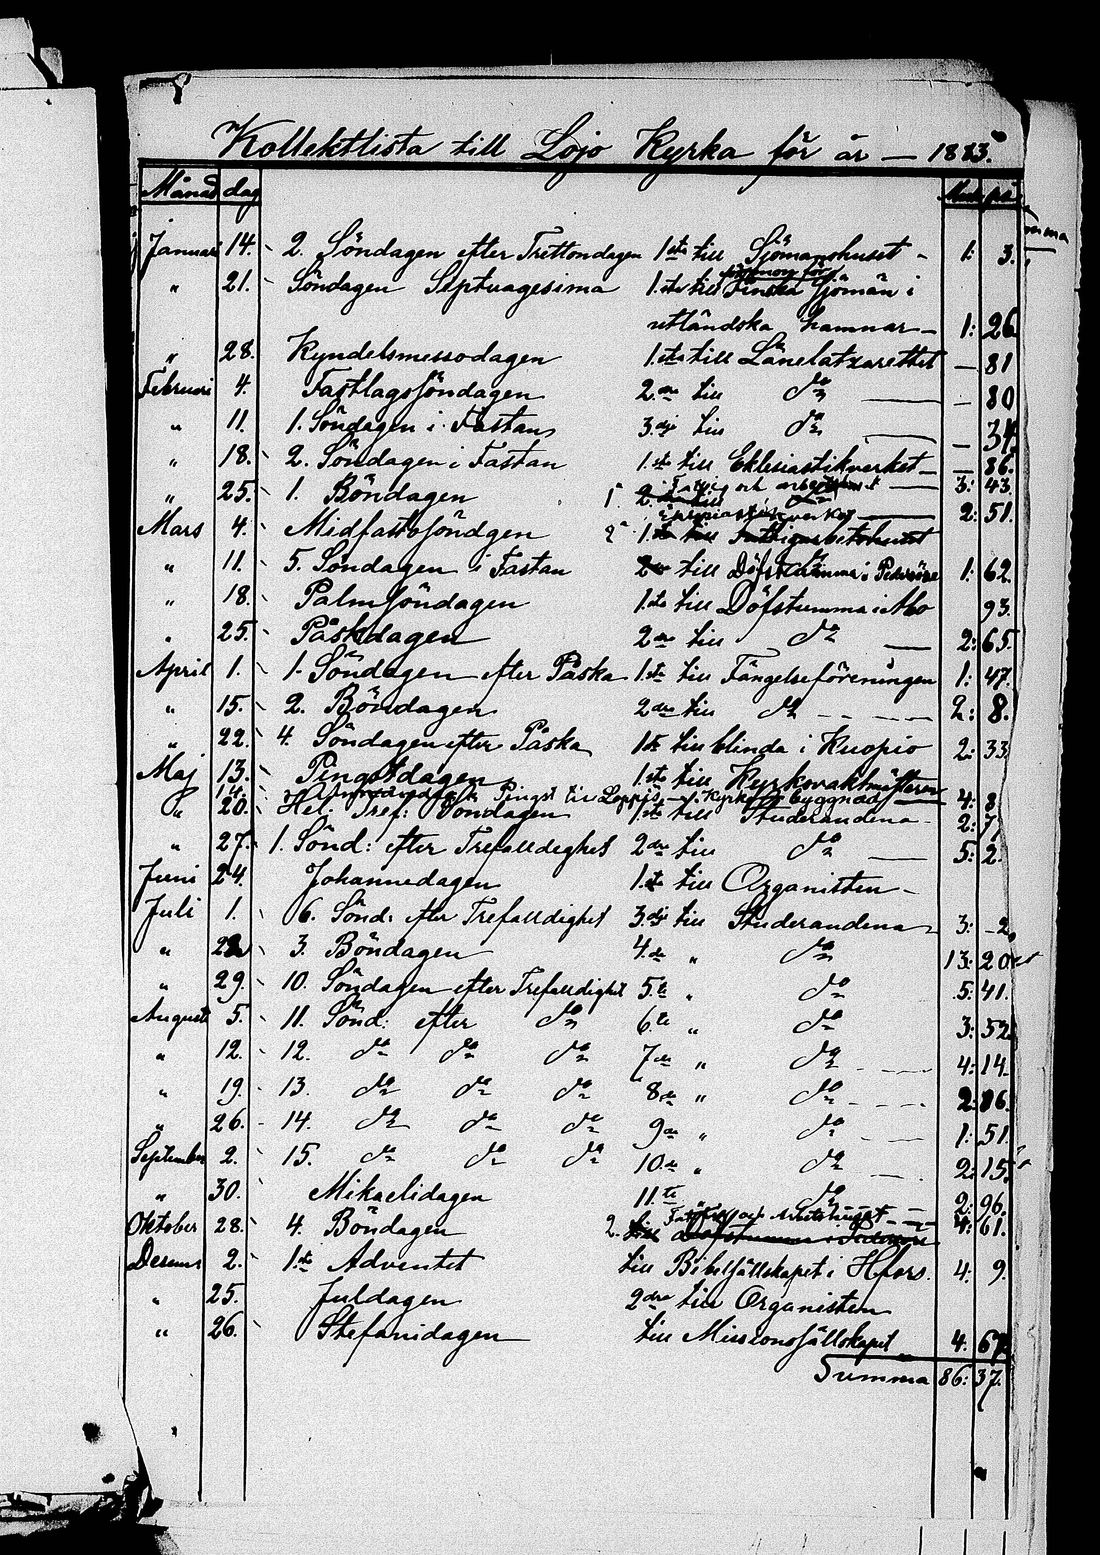 Kollektlista till Lojo Kyrka för år — 1883.
Månad dag Mk pi
Januari 14. 2. Söndagen efter Trettondagen 1sta till Sjömanshuset - 1: 3.
" 21. Söndagen Septuagesima 1.sta till Finska Sjömän i
utländska hamnar — 1: 26
" 28. Kyndelsmessodagen 1.sta till Länelatzarettet — 81
Februari 4. Fastlagssöndagen 2.dra till do — 80
" 11. 1. Söndagen i Fastan 3.dje till do — 34
" 18. 2. Söndagen i Fastan 1.sta till Eklesiastikverket — 86.
" 25. 1. Böndagen 1. Fattig och 3: 43.
Mars 4. Midfastosöndgen 2 Eklesiastikverket — 2: 51.
" 11. 5. Söndagen i Fastan till Döfstumma i Pedersöre 1: 62
" 18. Palmsöndagen 1.sta till Döfstumma i Åbo 93.
" 25. Påskdagen 2.dra till do — 2: 65.
April 1. 1. Söndagen efter Påska 1.sta till Fängelseföreningen 1: 47.
" 15. 2. Böndagen 2.dra till do - - - 2: 8.
" 22. 4. Söndagen efter Påska 1sta till blinda i Kuopio 2: 33.
Maj 13. Pingstdagen 1.sta till Kyrkovaktmästaren
14. Annandag Pingst till Loppis Kyrko byggnad — 4: 8
" 20. Hel. Tref: Söndagen 1.sta till Studerandena - 2: 7.
" 27. 1. Sönd: efter Trefalldighet 2dra till do — 5: 2.
Juni 24. Johannedagen 1.sta till Organisten -
Juli 1. 6. Sönd: efter Trefalldighet 3.dje till Studerandena 3: 2.
" 22 3. Böndagen 4.de " do 13: 20
" 29. 10. Söndagen efter Trefalldighet 5.te " do 5: 41.
Augusti 5. 11. Sönd: efter do 6.te " do 3: 52
" 12. 12. do do do 7de " do - - - 4: 14
" 19. 13. do do do 8de " do - - - 2: 86.
" 26. 14. do do do 9de " do - - - 1: 51.
September 2. 15. do do do 10.de " do - - - 2: 15
" 30. Mikaelidagen 11.te " do 2: 96.
Oktober 28. 4. Böndagen 2. Fattig och Arbetshuset - - 4: 61.
till Döfstumma i Pedersöre
Decemb 2. 1.sta Adventet till Bibelsällskapet i Hfors. 4: 9.
" 25. Juldagen 2dra till Organisten
" 26. Stefanidagen till Missionssällskapet 4: 67
Summa 86: 37.